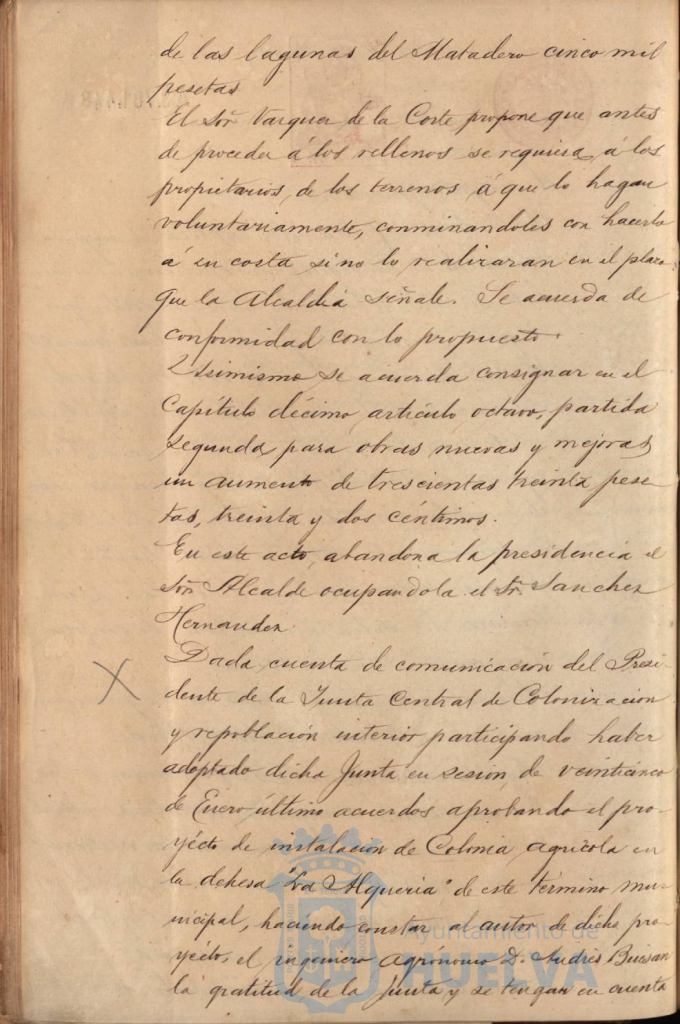 de las lagunas del Matadero cinco mil
pesetas
El Sor. Vazquez de la Corte propone que antes
de proceder á los rellenos se requiera, á los
propietarios, de los terrenos á que lo hagan
voluntariamente, conminandoles con hacerlo
á su costa si no lo realizaran en el plazo
que la Alcaldía señale. Se acuerda de
conformidad con lo propuesto.
Asimismo se acuerda consignar en el
Capítulo décimo, artículo octavo, partida
segunda, para obras nuevas y mejoras
un aumento de trescientas treinta pese-
tas, treinta y dos céntimos.
En este acto, abandona la presidencia el
Sor. Alcalde ocupandola el Sr. Sanchez
Hernandez.
Dada cuenta de comunicación del Presi-
dente de la Junta Central de Colonizacion
y repoblación interior participando haber
adoptado dicha Junta en sesión, de veinticinco
de Enero último acuerdos aprobando el pro-
yécto de instalación de Colonia agricola en
la dehesa "La Alqueria" de este término mu-
nicipal, haciendo constar al autor de dicho pro-
yécto, el ingeniero agrónomo D. Andrés
la gratitud de la Junta y se tengan en cuenta
Ayuntamiento de
HUELVA